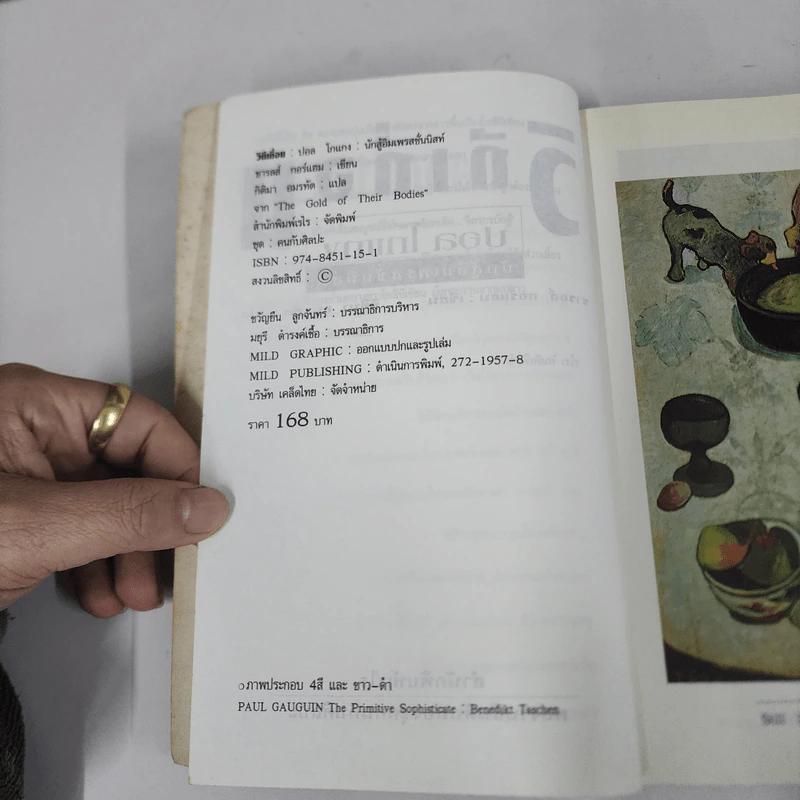 วิถีเถื่อน : ปอล โกแกง : นักสู้อิมเพรสชั่นนิสท์
ชารลส์ กอร์แฮม : เขียน
กิติมา อมรทัต : แปล
จาก "The Gold of Their Bodies"
สำนักพิมพ์เรไร : จัดพิมพ์
ชุด : คนกับศิลปะ
ISBN : 974-8451-15-1
สงวนลิขสิทธิ์ : ©
ขวัญยืน ลูกจันทร์ : บรรณาธิการบริหาร
มยุรี ดำรงค์เชื้อ : บรรณาธิการ
MILD GRAPHIC : ออกแบบปกและรูปเล่ม
MILD PUBLISHING : ดำเนินการพิมพ์, 272-1957-8
บริษัท เคล็ดไทย : จัดจำหน่าย
ราคา 168 บาท
ภาพประกอบ 4สี และ ขาว-ดำ
PAUL GAUGUIN The Primitive Sophisticate : Benedikt Taschen